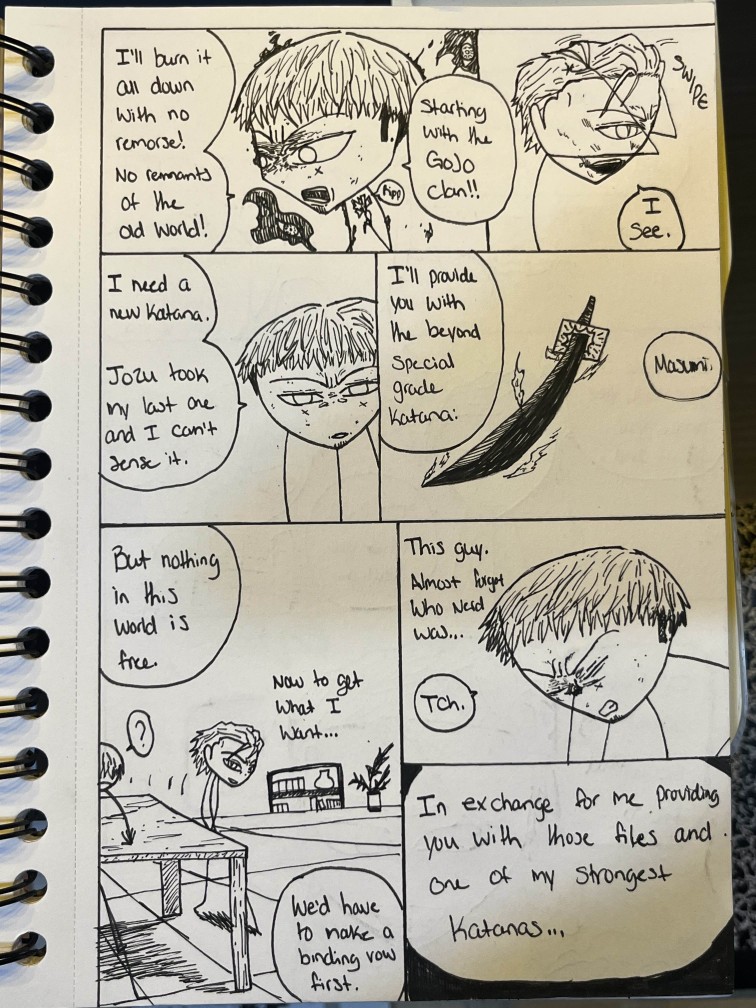 I'll burn it
all down
with no
remorse!
No remnants
of the
old world!
Ripp
Starting
with the
GoJo
clan!!
SWIPE
I
see.
I need a
new Katana.
Jozu took
my last one
and I can't
sense it.
I'll provide
you with
the beyond
special
grade
Katana:
Masumi.
But nothing
in this
world is
free.
?
Now to get
what I
want...
We'd have
to make a
binding vow
first.
This guy.
Almost forgot
who Nerd
was...
Tch.
In exchange for me providing
you with those files and
one of my strongest
Katanas...